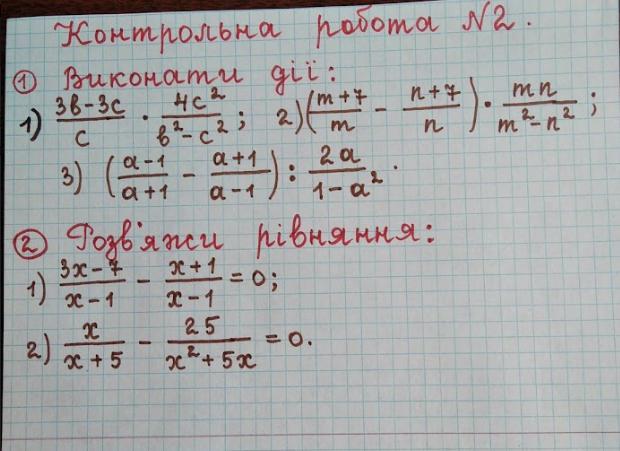 Контрольна робота №2.
① Виконати дії:
1) (3в-3с)/с · 4с²/(в²-с²); 2) ((m+7)/m - (n+7)/n) · mn/(m²-n²);
3) ((a-1)/(a+1) - (a+1)/(a-1)) : 2a/(1-a²).
② Розв'яжи рівняння:
1) (3x-7)/(x-1) - (x+1)/(x-1) = 0;
2) x/(x+5) - 25/(x²+5x) = 0.